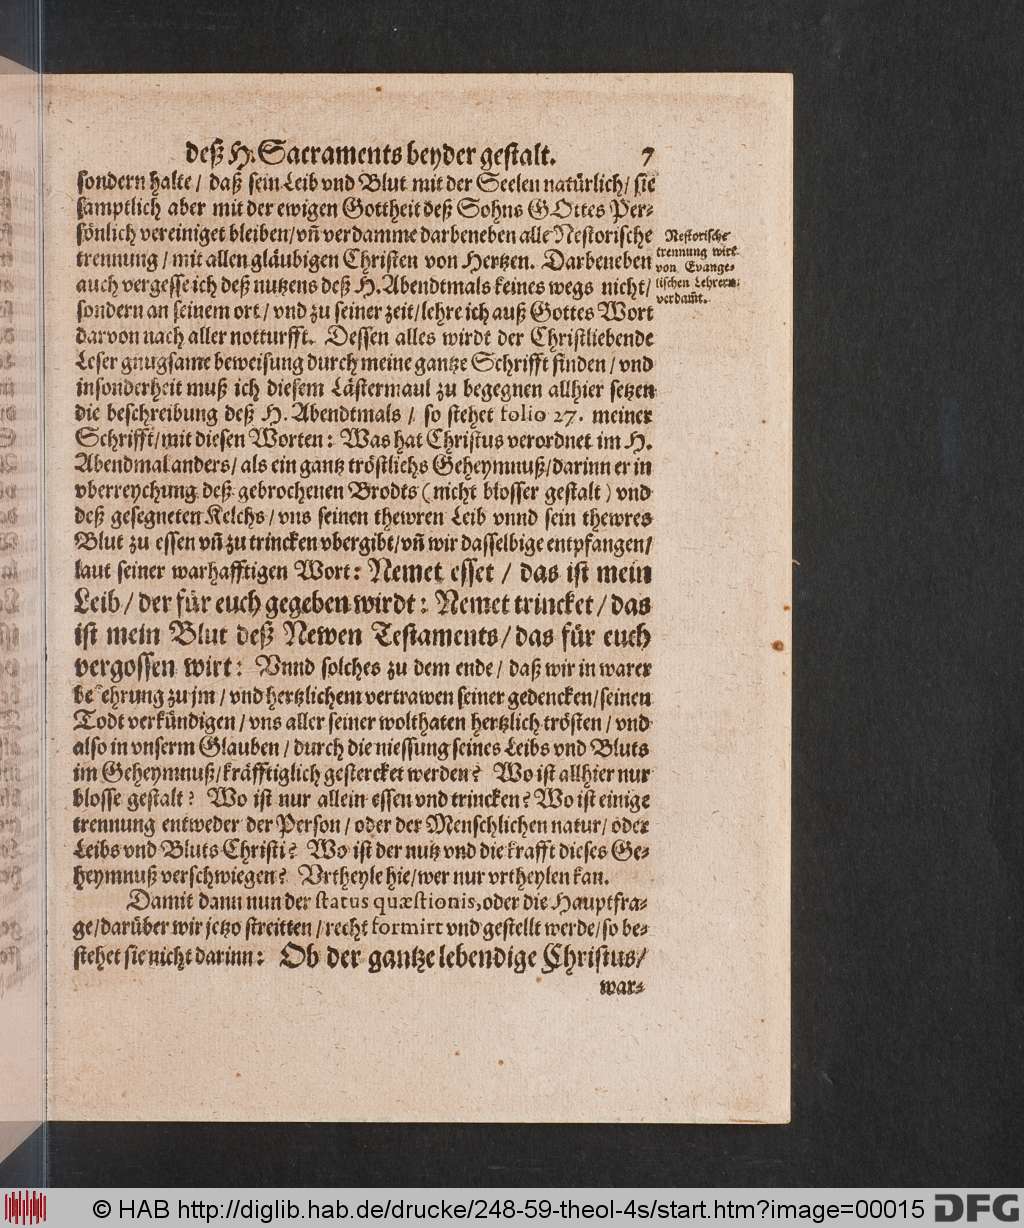 deß H. Sacraments beyder gestalt. 7
sondern halte / daß sein Leib vnd Blut mit der Seelen natürlich / sie
samptlich aber mit der ewigen Gottheit deß Sohns GOttes Per-
sönlich vereiniget bleiben / vñ verdamme darbeneben alle Nestorische
trennung / mit allen gläubigen Christen von Hertzen. Darbeneben
auch vergesse ich deß nutzens deß H. Abendtmals keines wegs nicht /
sondern an seinem ort / vnd zu seiner zeit / lehre ich auß Gottes Wort
darvon nach aller notturfft. Dessen alles wirdt der Christliebende
Leser gnugsame beweisung durch meine gantze Schrifft finden / vnd
insonderheit muß ich diesem Lästermaul zu begegnen allhier setzen
die beschreibung deß H. Abendtmals / so stehet folio 27. meiner
Schrifft / mit diesen Worten: Was hat Christus verordnet im H.
Abendmal anders / als ein gantz tröstlichs Geheymnuß / darinn er in
vberreychung deß gebrochenen Brodts (nicht blosser gestalt) vnd
deß gesegneten Kelchs / vns seinen thewren Leib vnnd sein thewres
Blut zu essen vñ zu trincken vbergibt / vñ wir dasselbige entpfangen /
laut seiner warhafftigen Wort: Nemet esset / das ist mein
Leib / der für euch gegeben wirdt: Nemet trincket / das
ist mein Blut deß Newen Testaments / das für euch
vergossen wirt: Vnnd solches zu dem ende / daß wir in warer
zu jm / vnd hertzlichem vertrawen seiner gedencken / seinen
Todt verkündigen / vns aller seiner wolthaten hertzlich trösten / vnd
also in vnserm Glauben / durch die niessung seines Leibs vnd Bluts
im Geheymnuß / kräfftiglich gestercket werden? Wo ist allhier nur
blosse gestalt? Wo ist nur allein essen vnd trincken? Wo ist einige
trennung entweder der Person / oder der Menschlichen natur / oder
Leibs vnd Bluts Christi? Wo ist der nutz vnd die krafft dieses Ge-
heymnuß verschwiegen? Vrtheyle hie / wer nur vrtheylen kan.
Damit dann nun der status quæstionis, oder die Hauptfra-
ge / darüber wir jetzo streitten / recht formirt vnd gestellt werde / so be-
stehet sie nicht darinn: Ob der gantze lebendige Christus /
war-
Nestorische
trennung wirt
von Evange-
lischen Lehrern
verdamt.
© HAB http://diglib.hab.de/drucke/248-59-theol-4s/start.htm?image=00015 DFG